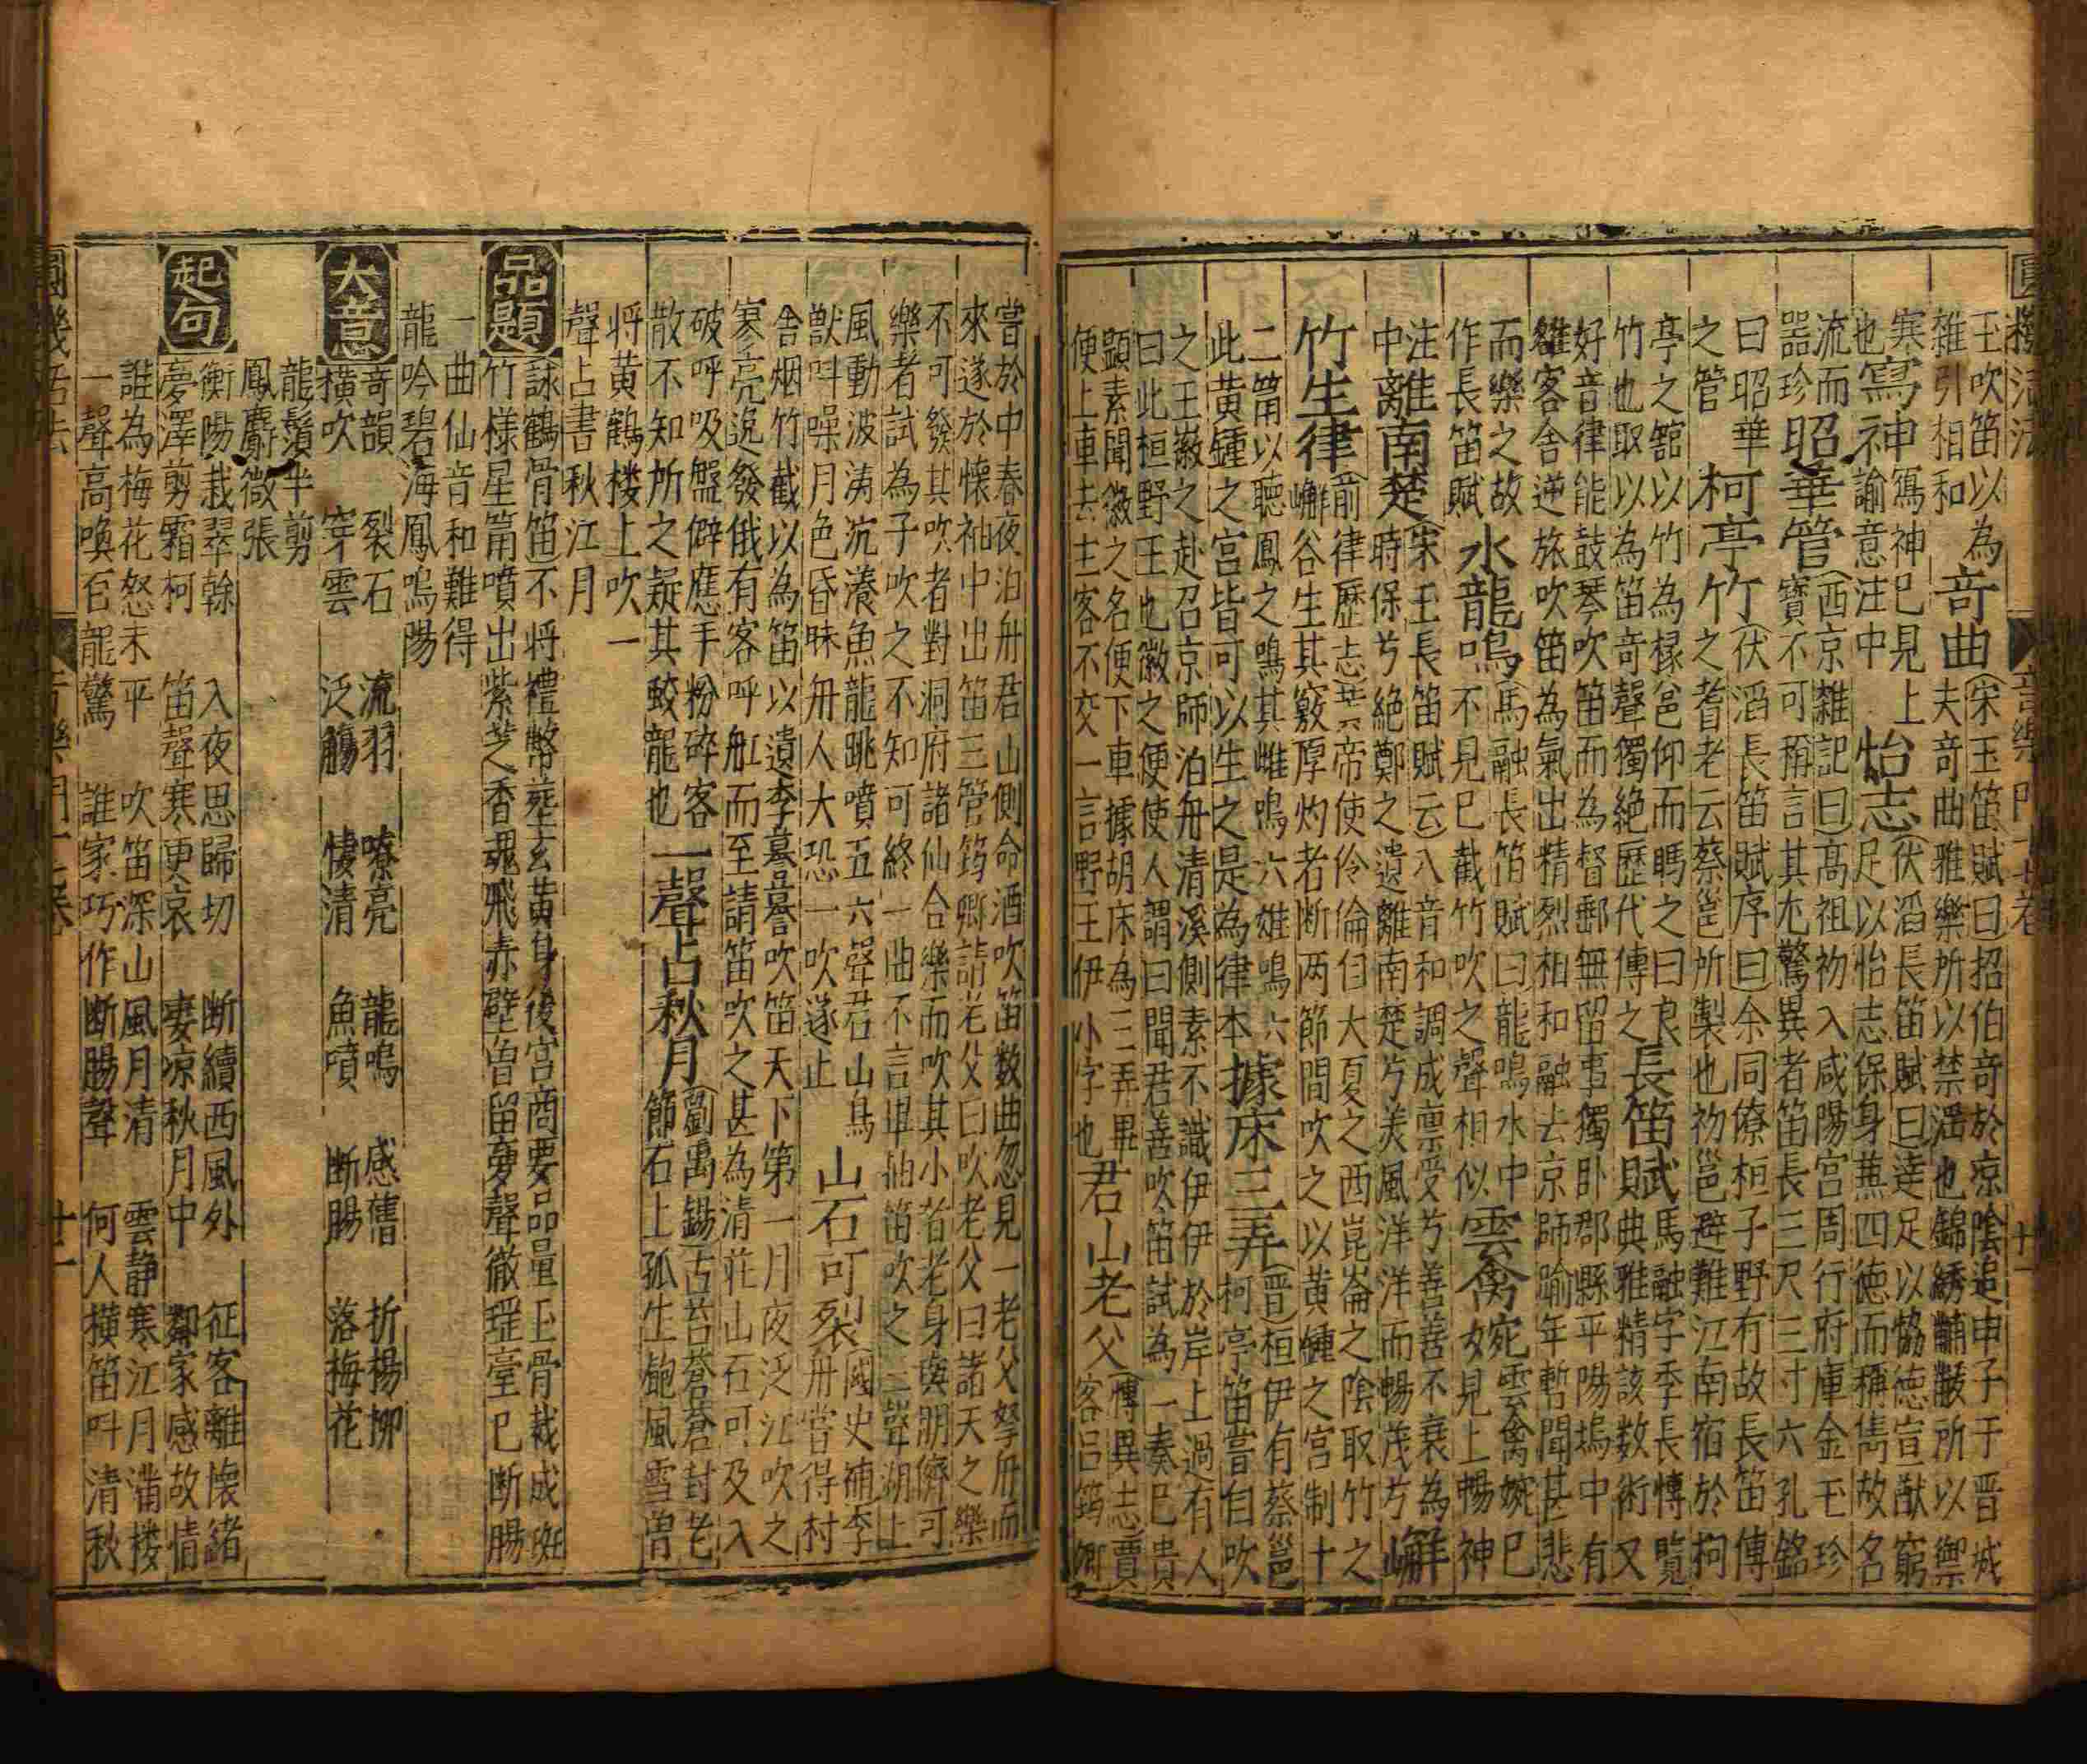 王吹笛以為 奇曲(宋玉笛賦曰招伯奇於涼陰追申子于晋城
雜引相和 夫奇曲雅樂所以禁滛也錦綉黼黻所以禦
寒 寫神 寫神已見上 怡志(伏滔長笛賦曰達足以恊徳宣猷窮
也 諭意注中 足以怡志保身蕪四徳而稱雋故名
流而 昭華管(西京雜記曰)髙祖初入咸陽宫周行府庫金玉珍
噐珍 寶不可稱言其尤驚異者笛長三尺三寸六孔銘
曰昭華 柯亭竹(伏滔長笛賦序曰)余同僚桓子野有故長笛傳
之管 之耆老云蔡邕所製也初邕避難江南宿於柯
亭之舘以竹為椽邕仰而眄之曰良 長笛賦 馬融字季長愽覽
竹也取以為笛奇聲獨絶歴代傳之 典雅精該数術又
好音律能鼓琴吹笛而為督郵無留事獨卧郡縣平陽塢中有
雒客舍逆旅吹笛為氣出精烈相和融去京師踰年暫聞甚悲
而樂之故 水龍鳴 馬融長笛賦曰龍鳴水中 雲禽婉 雲禽婉已
作長笛賦 不見已截竹吹之聲相似 見上暢神
注 離南楚(宋玉長笛賦云)八音和調成禀受兮善善不衰為
中 時保兮絶鄭之遺離南楚兮美風洋洋而暢茂兮 嶰
竹生律(前律歴志)黄帝使伶倫自大夏之西崑崙之陰取竹之
嶰谷生其竅厚灼者断两節間吹之以黄鍾之宫制十
二筩以聴鳳之鳴其雌鳴六雄鳴六 據床三弄(晋)桓伊有蔡邕
此黄鍾之宫皆可以生之是為律本 柯亭笛嘗自吹
之王徽之赴召京師泊舟清溪側素不識伊伊於岸上過有人
曰此桓野王也徽之便使人謂曰聞君善吹笛試為一奏已貴
顕素聞徽之名便下車據胡床為三弄畢 君山老父(愽異志)賈
便上車去主客不交一言野王伊小字也 客吕筠卿
嘗於中春夜泊舟君山側命酒吹笛数曲忽見一老父拏舟而
來遂於懐袖中出笛三管筠卿請老父曰吹老父曰諸天之樂
不可發其吹者對洞府諸仙合樂而吹其小者老身與朋儕可
樂者試為子吹之不知可終一曲不言畢抽笛吹之三聲湖上
風動波涛沉瀁魚龍跳噴五六聲君山鳥 山石可裂(國史補)李
獣呌噪月色昏昧舟人大恐一吹遂止 舟嘗得村
舎烟竹截以為笛以遺李暮暮吹笛天下第一月夜泛江吹之
寥亮逸發俄有客呼舡而至請笛吹之甚為清莊山石可及入
破呼吸盤僻應手粉碎客 一聲占秋月(劉禹錫)古苔蒼蒼封老
散不知所之疑其蛟龍也 節石上孤生飽風雪曽
将黄鶴楼上吹一
聲占書秋江月
品題 (詠鶴骨笛)不将禮幣葬玄黄身後宫商要品量玉骨裁成斑
竹様星筩噴出紫芝香魂飛赤壁曽留夢聲徹瑶臺已断腸
一曲仙音和難得
龍吟碧海鳳鳴陽
大意 竒韻 裂石 流羽 嘹亮 龍鳴 感舊 折楊柳
横吹 穿雲 泛觴 悽清 魚噴 断腸 落梅花
龍鬚半剪
鳳麝微張
起句 衡陽栽翠幹 入夜思歸切 断續西風外 征客離懐緒
夢澤剪霜柯 笛聲寒更哀 凄凉秋月中 鄰家感故情
誰為梅花怒未平 吹笛深山風月清 雲静寒江月滿楼
一聲高喚百龍驚 誰家巧作断腸聲 何人横笛呌清秋